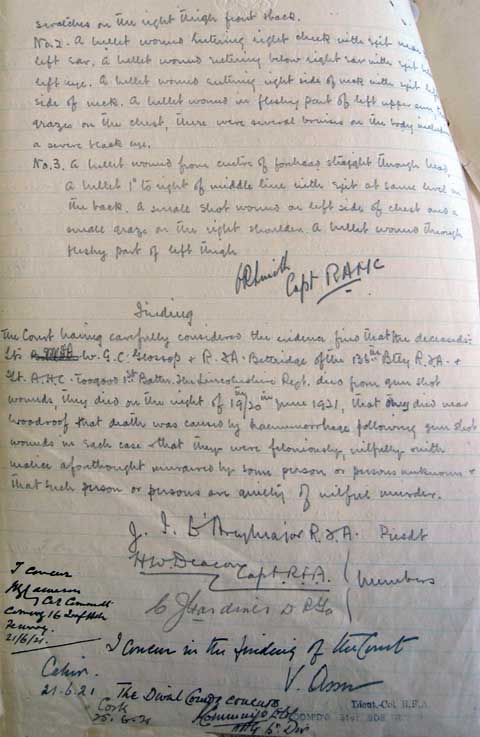 scratches on the right thigh front & back.
No. 2. A bullet wound entering right cheek with exit near
left ear. A bullet wound entering below right ear with exit below
left eye. A bullet wound entering right side of neck with exit left
side of neck. A bullet wound in fleshy part of left upper arm, two
grazes on the chest, there were several bruises on the body including
a severe black eye.
No. 3. A bullet wound from centre of forehead straight through head,
A bullet 1" to right of middle line with exit at same level on
the back. A small shot wound on left side of chest and a
small graze on the right shoulder. A bullet wound through
fleshy part of left thigh
Smith
Capt RAMC
Finding
The Court having carefully considered the evidence find that the deceased:-
Lts W. G. C. Glossop & R. J.A. Betteridge of the 136th Btty R.F.A. &
Lt. A.H.C. Toogood 1st Battn. The Lincolnshire Regt. died from gun shot
wounds, they died on the night of 19th/20th June 1921, that they died near
Woodroof that death was caused by haemorrhage following gun shot
wounds in each case & that they were feloniously, wilfully & with
malice aforethought murdered by some person or persons unknown &
that such person or persons are guilty of wilful murder.
Major R.F.A. Presdt
H.W. Deacon Capt. R.F.A.
Members
Gardiner
I concur
Col Commdt
Commg 16 Inf Bde
Fermoy
21/6/21.
I concur in the finding of the Court
Cahir.
21-6-21
Lieut.-Col R.F.A.
The Divnl Comdr concurs
Cork
25.6.21
6th Div